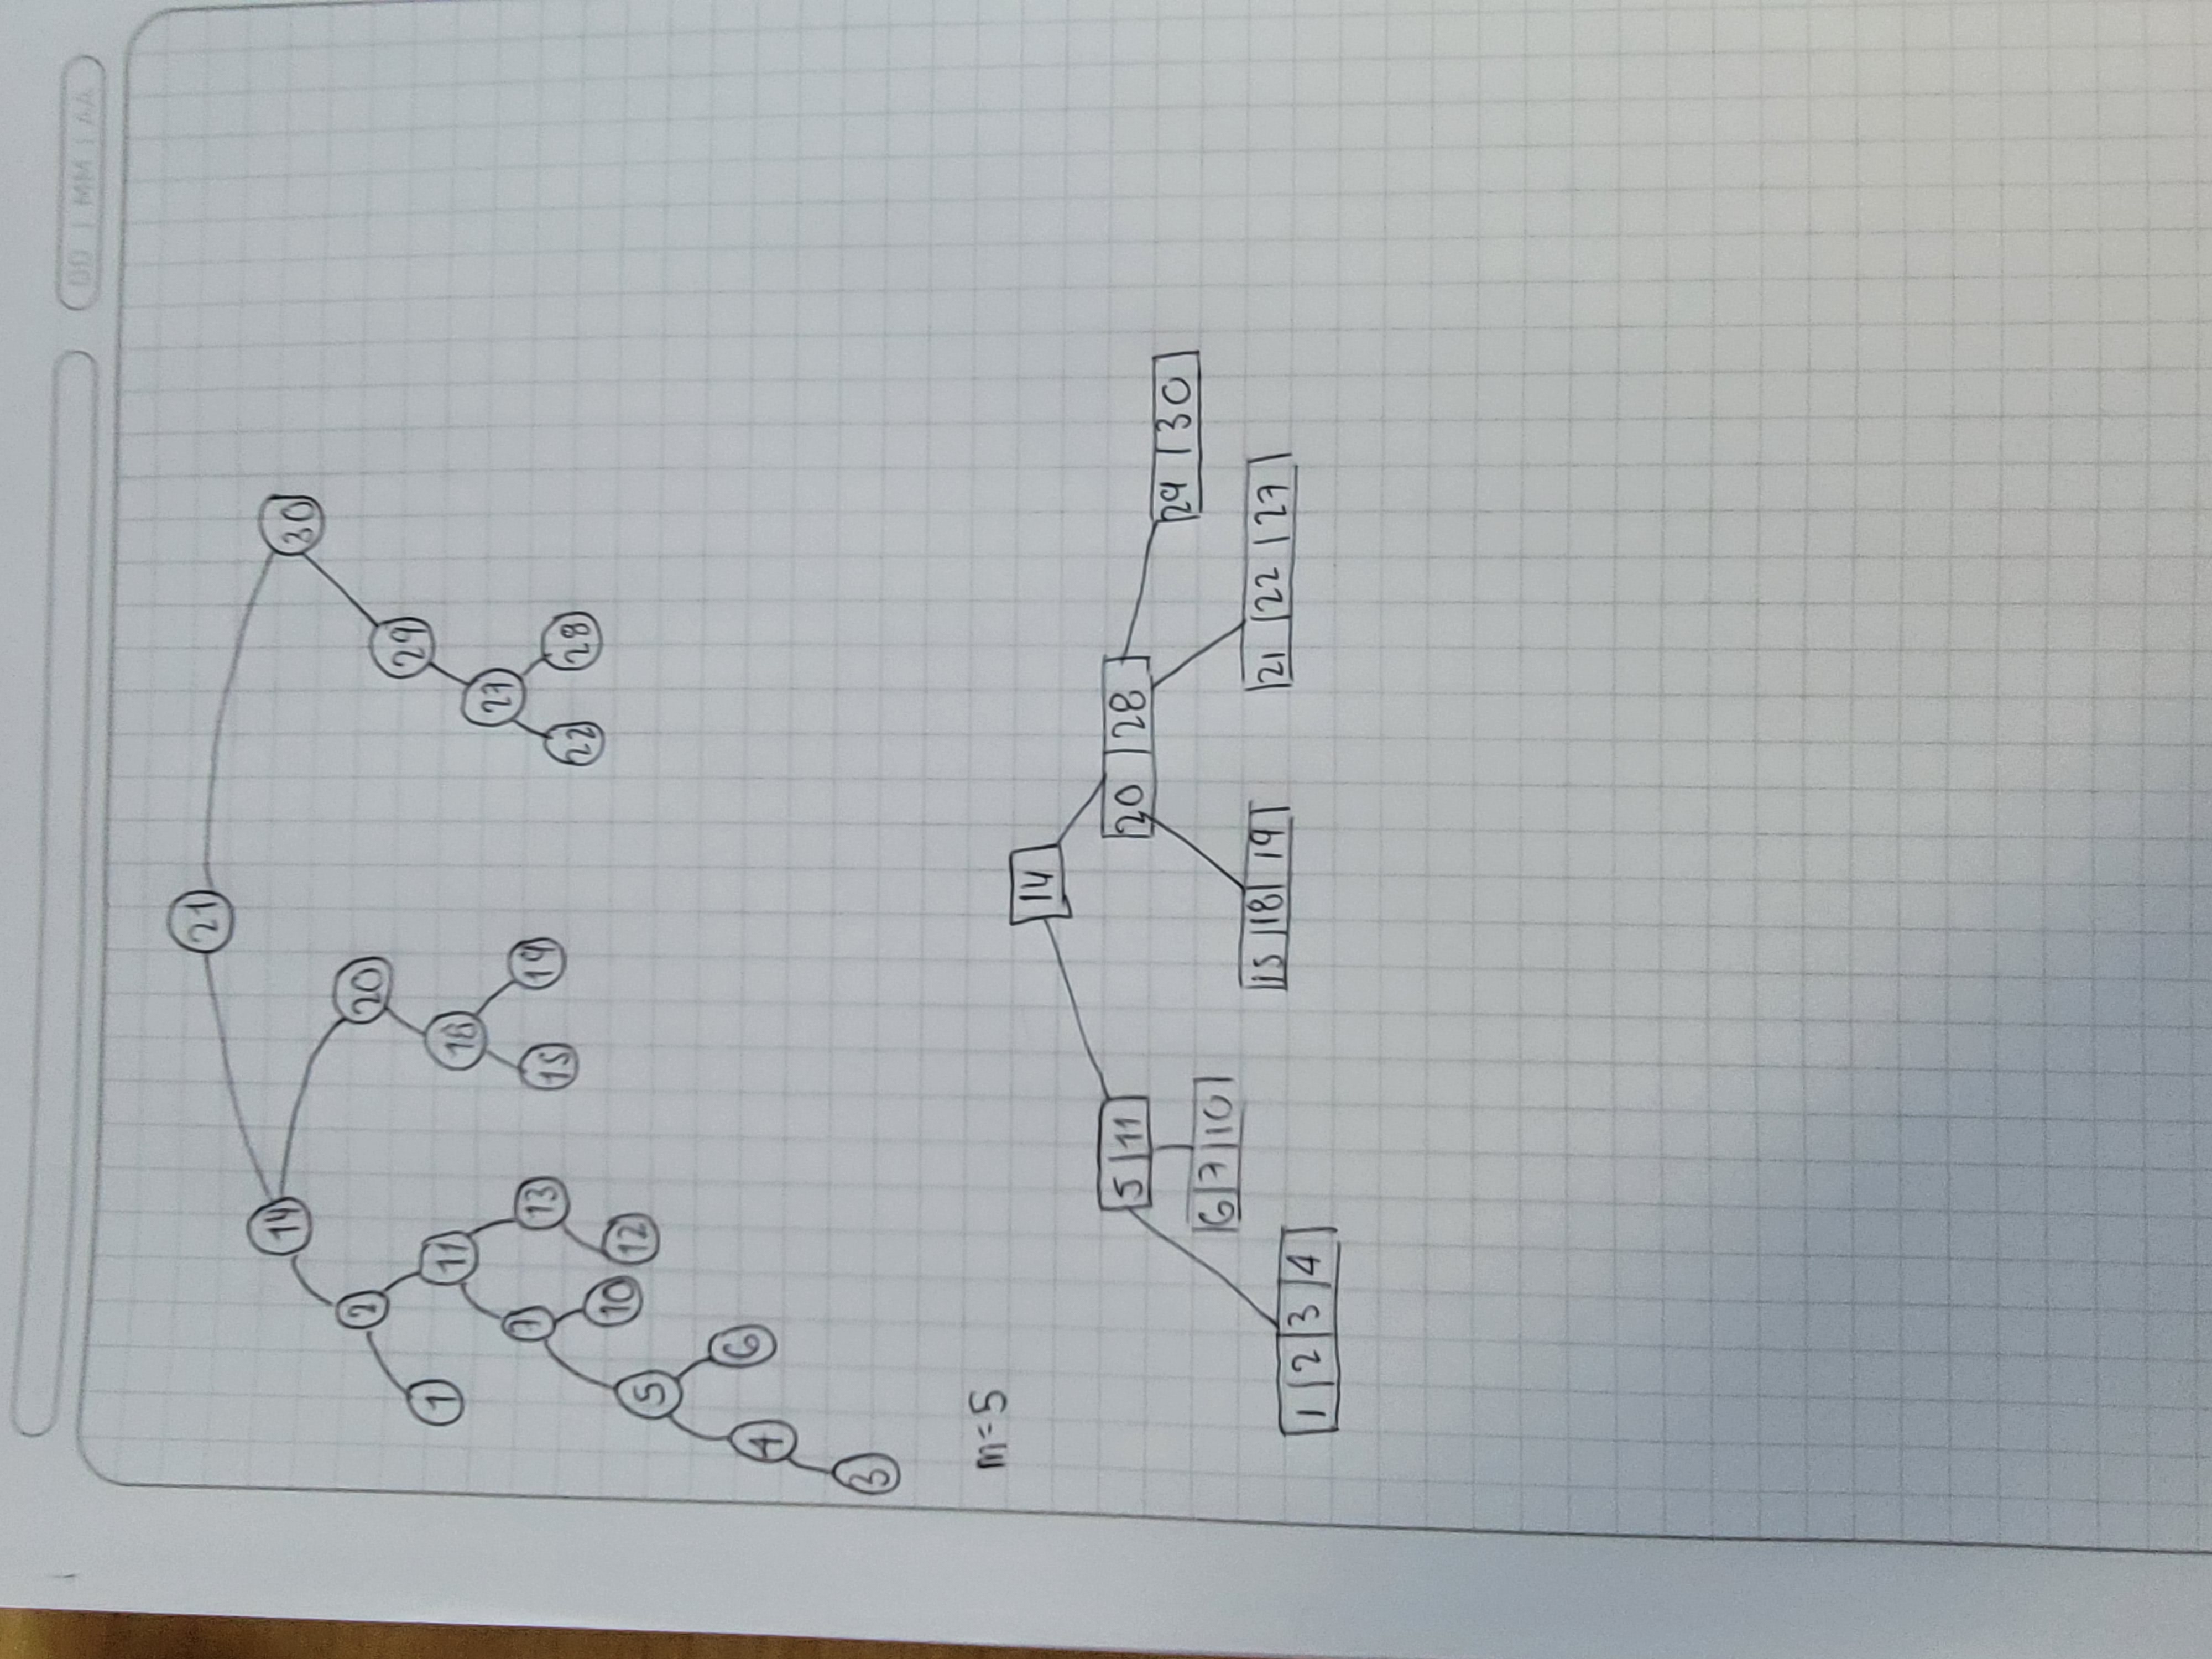 DD | MM | AA
21
14 30
2 20
29
1 11 18
27
7 13 15 19
22 28
10 12
5
6
4
3
m=5
14
5 | 11 20 | 28
29 | 30
6 | 7 | 10
15 | 18 | 19 21 | 22 | 27
1 | 2 | 3 | 4